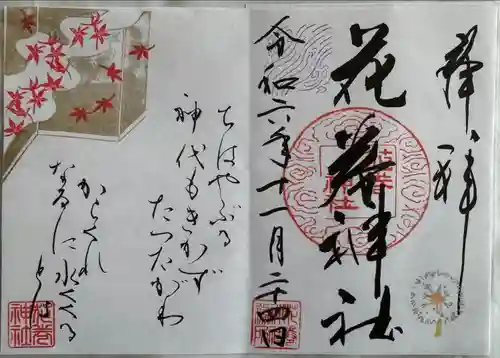 奉拝
花巻神社
令和六年十一月二十四日
ちはやぶる
神代もきかず
たつたがわ
からくれ
なゐに水くくる
とは
花巻神社